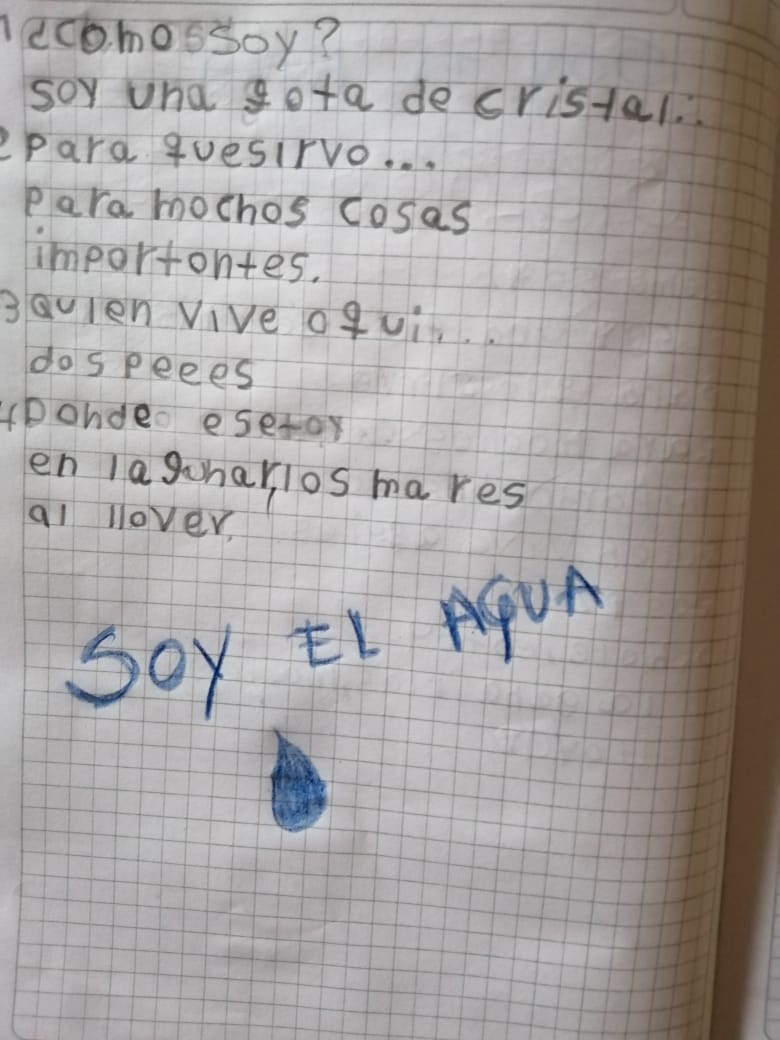 1 ¿comossoy?
soy una gota de cristal...
2 para quesirvo...
para mochos cosas
importontes.
3 quien vive oqui....
dos peees
4 Donde esetoy...
en lagunar, los mares
al llover.
SOY EL AGUA